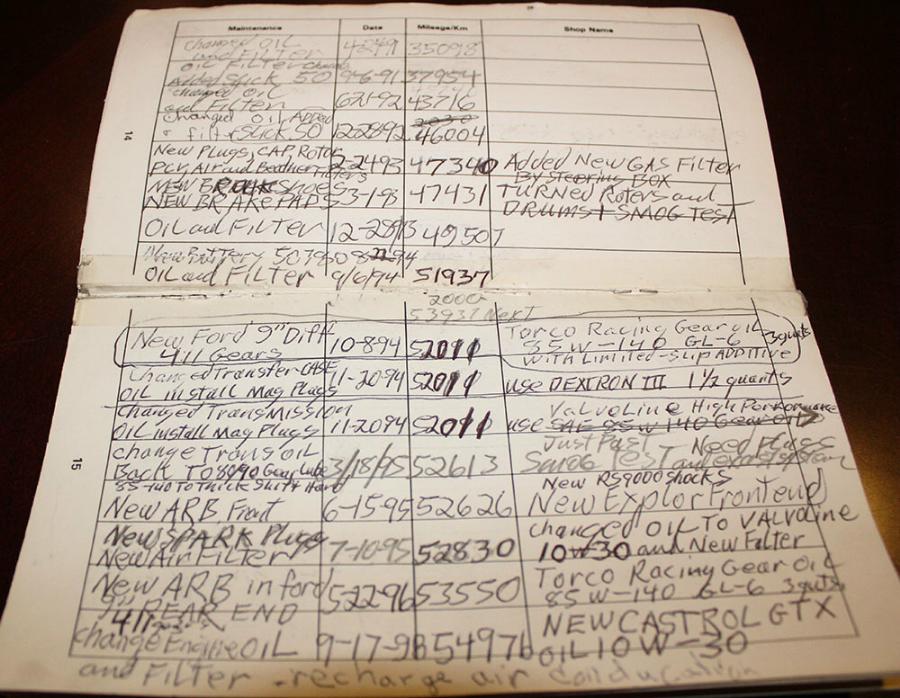 Maintenance Date Mileage/Km Shop Name
changed OIL
and FILTER 4-24-91 35098
OIL FILTER
Added Slick 50 9-6-91 37954
changed oil
and FILTER 6-21-92 43716
Changed OIL Added
+ filt + SLICK 50 12-28-92 46004
New Plugs, CAP, Rotor
PCV Air and Breather Filters 2-24-93 47340 Added New GAS Filter
By Steering BOX
NEW BRAKE SHOES
NEW BRAKE PADS 5-3-1-93 47431 TURNED Roters and
DRUMS + SMOG TEST
OIL and FILTER 12-28-93 49507
New Battery
OIL and FILTER 9/6/94 51937
14
2000
53937 Next
New Ford 9" Diff
411 Gears 10-8-94 52011 Torco Racing Gear oil
85W-140 GL-6 3 quts
with Limited-Slip ADDITIVE
Changed Transfer-CASE
OIL install Mag Plugs 11-20-94 52011 use DEXTRON III 1 1/2 quarts
changed TransMission
OIL install Mag Plugs 11-20-94 52011 use SAE 85W 140 Gear OIL
ValvoLine High Performance
change Trans OIL
Back To 80/90 Gear Lube
85-140 To Thick Shift Hard 3/18/95 52613 Just Past Need Plugs
Smog Test and
15
New ARB Front 6-15-95 52626 New RS9000 shocks
New Explor Frontend
New SPARK Plugs
New Air Filter 7-10-95 52830 changed OIL To VALVOLINE
10W30 and New Filter
New ARB in ford
9" REAR END
411 5-22-96 53550 Torco Racing Gear OIL
85W-140 GL-6 3 quts.
change Engine OIL 9-17-98 54976 NEW CASTROL GTX
OIL 10W-30
and Filter - recharge air